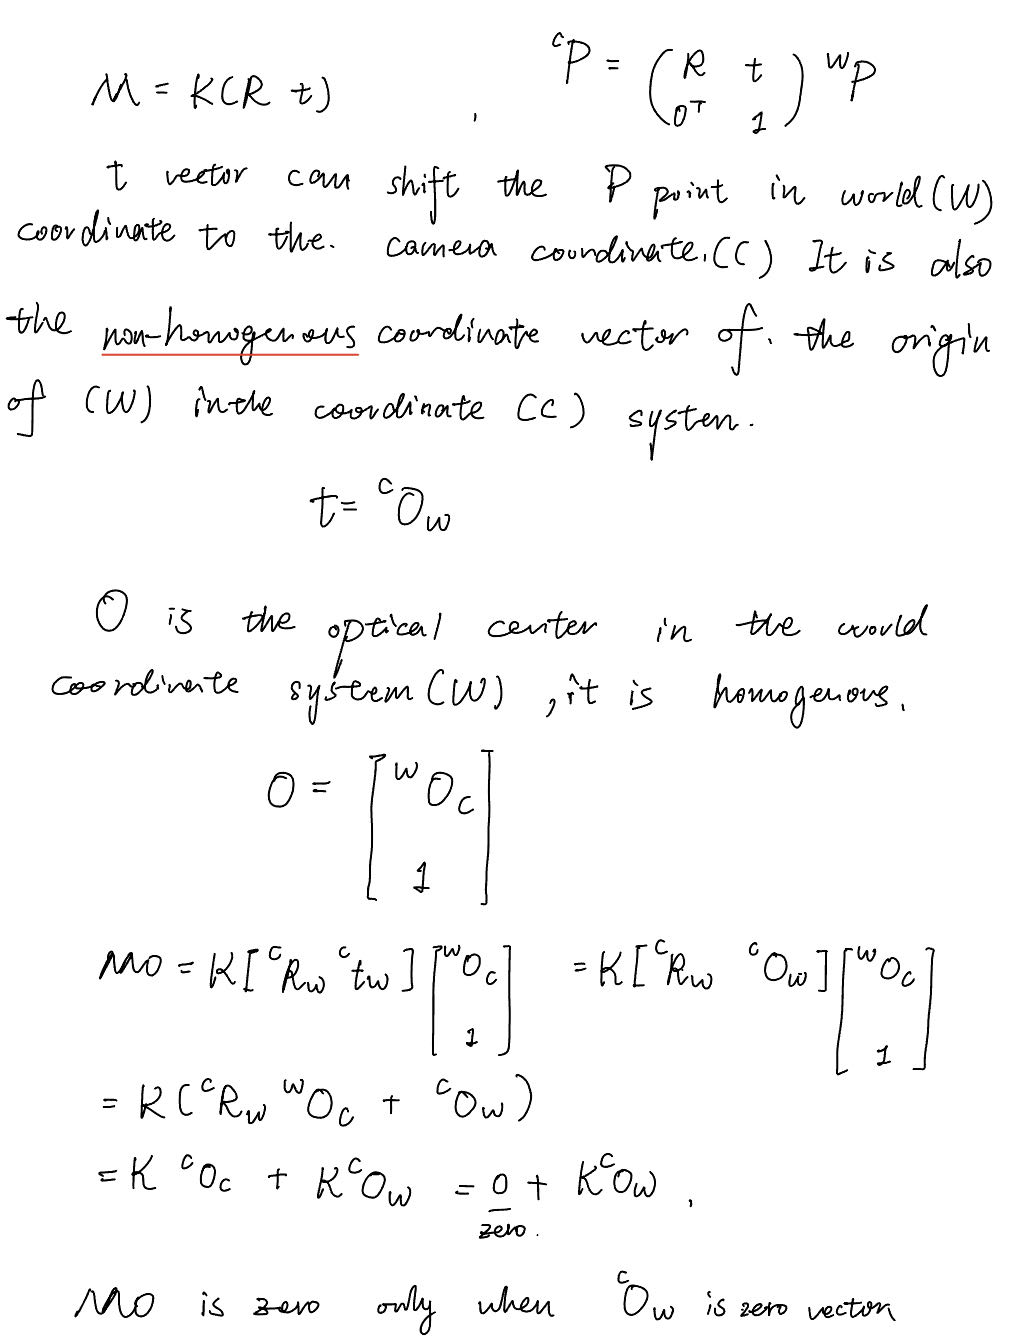 M = K(R t) , ᶜP = ( R t ; 0ᵀ 1 ) ᵂP
t vector can shift the P point in world (W)
coordinate to the. camera coordinate.(C) It is also
the non-homogenous coordinate vector of. the origin
of (W) in the coordinate (C) system.
t = ᶜO_W
O is the optical center in the world
coordinate system (W) , it is homogenous.
O = [ ᵂO_C ; 1 ]
MO = K [ ᶜR_W ᶜt_W ] [ ᵂO_C ; 1 ] = K [ ᶜR_W ᶜO_W ] [ ᵂO_C ; 1 ]
= K ( ᶜR_W ᵂO_C + ᶜO_W )
= K ᶜO_C + K ᶜO_W = 0 + K ᶜO_W ,
zero .
MO is zero only when ᶜO_W is zero vector